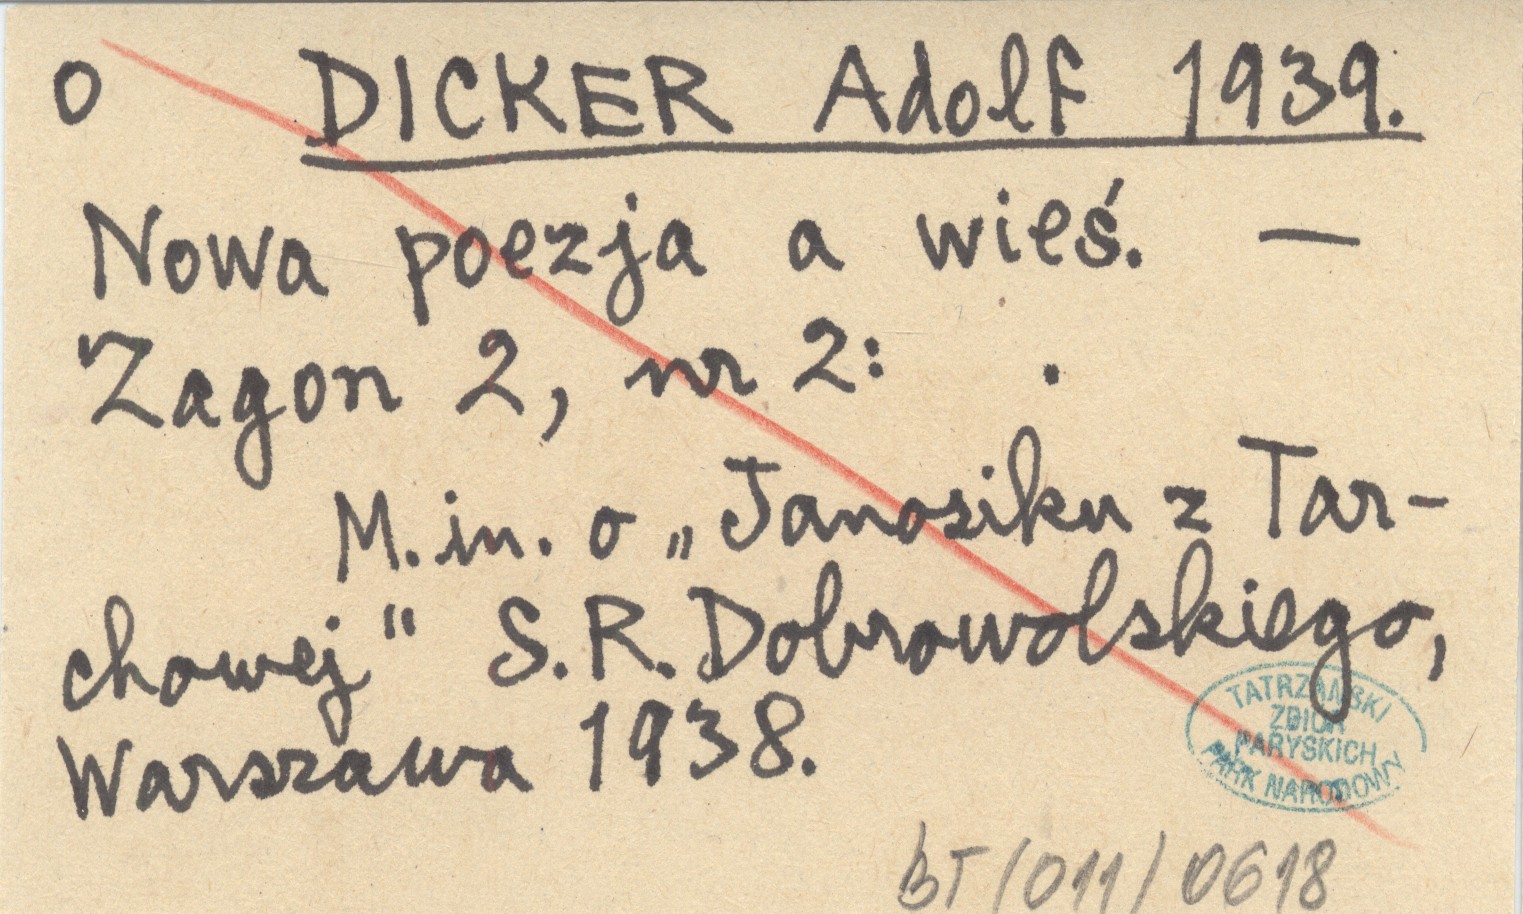 o DICKER Adolf 1939.
Nowa poezja a wieś. —
Zagon 2, nr 2: .
M.in. o „Janosiku z Tar-
chowej" S.R. Dobrowolskiego,
Warszawa 1938.
TATRZAŃSKI
ZBIÓR
PARYSKICH
PARK NARODOWY
BT/011/0618